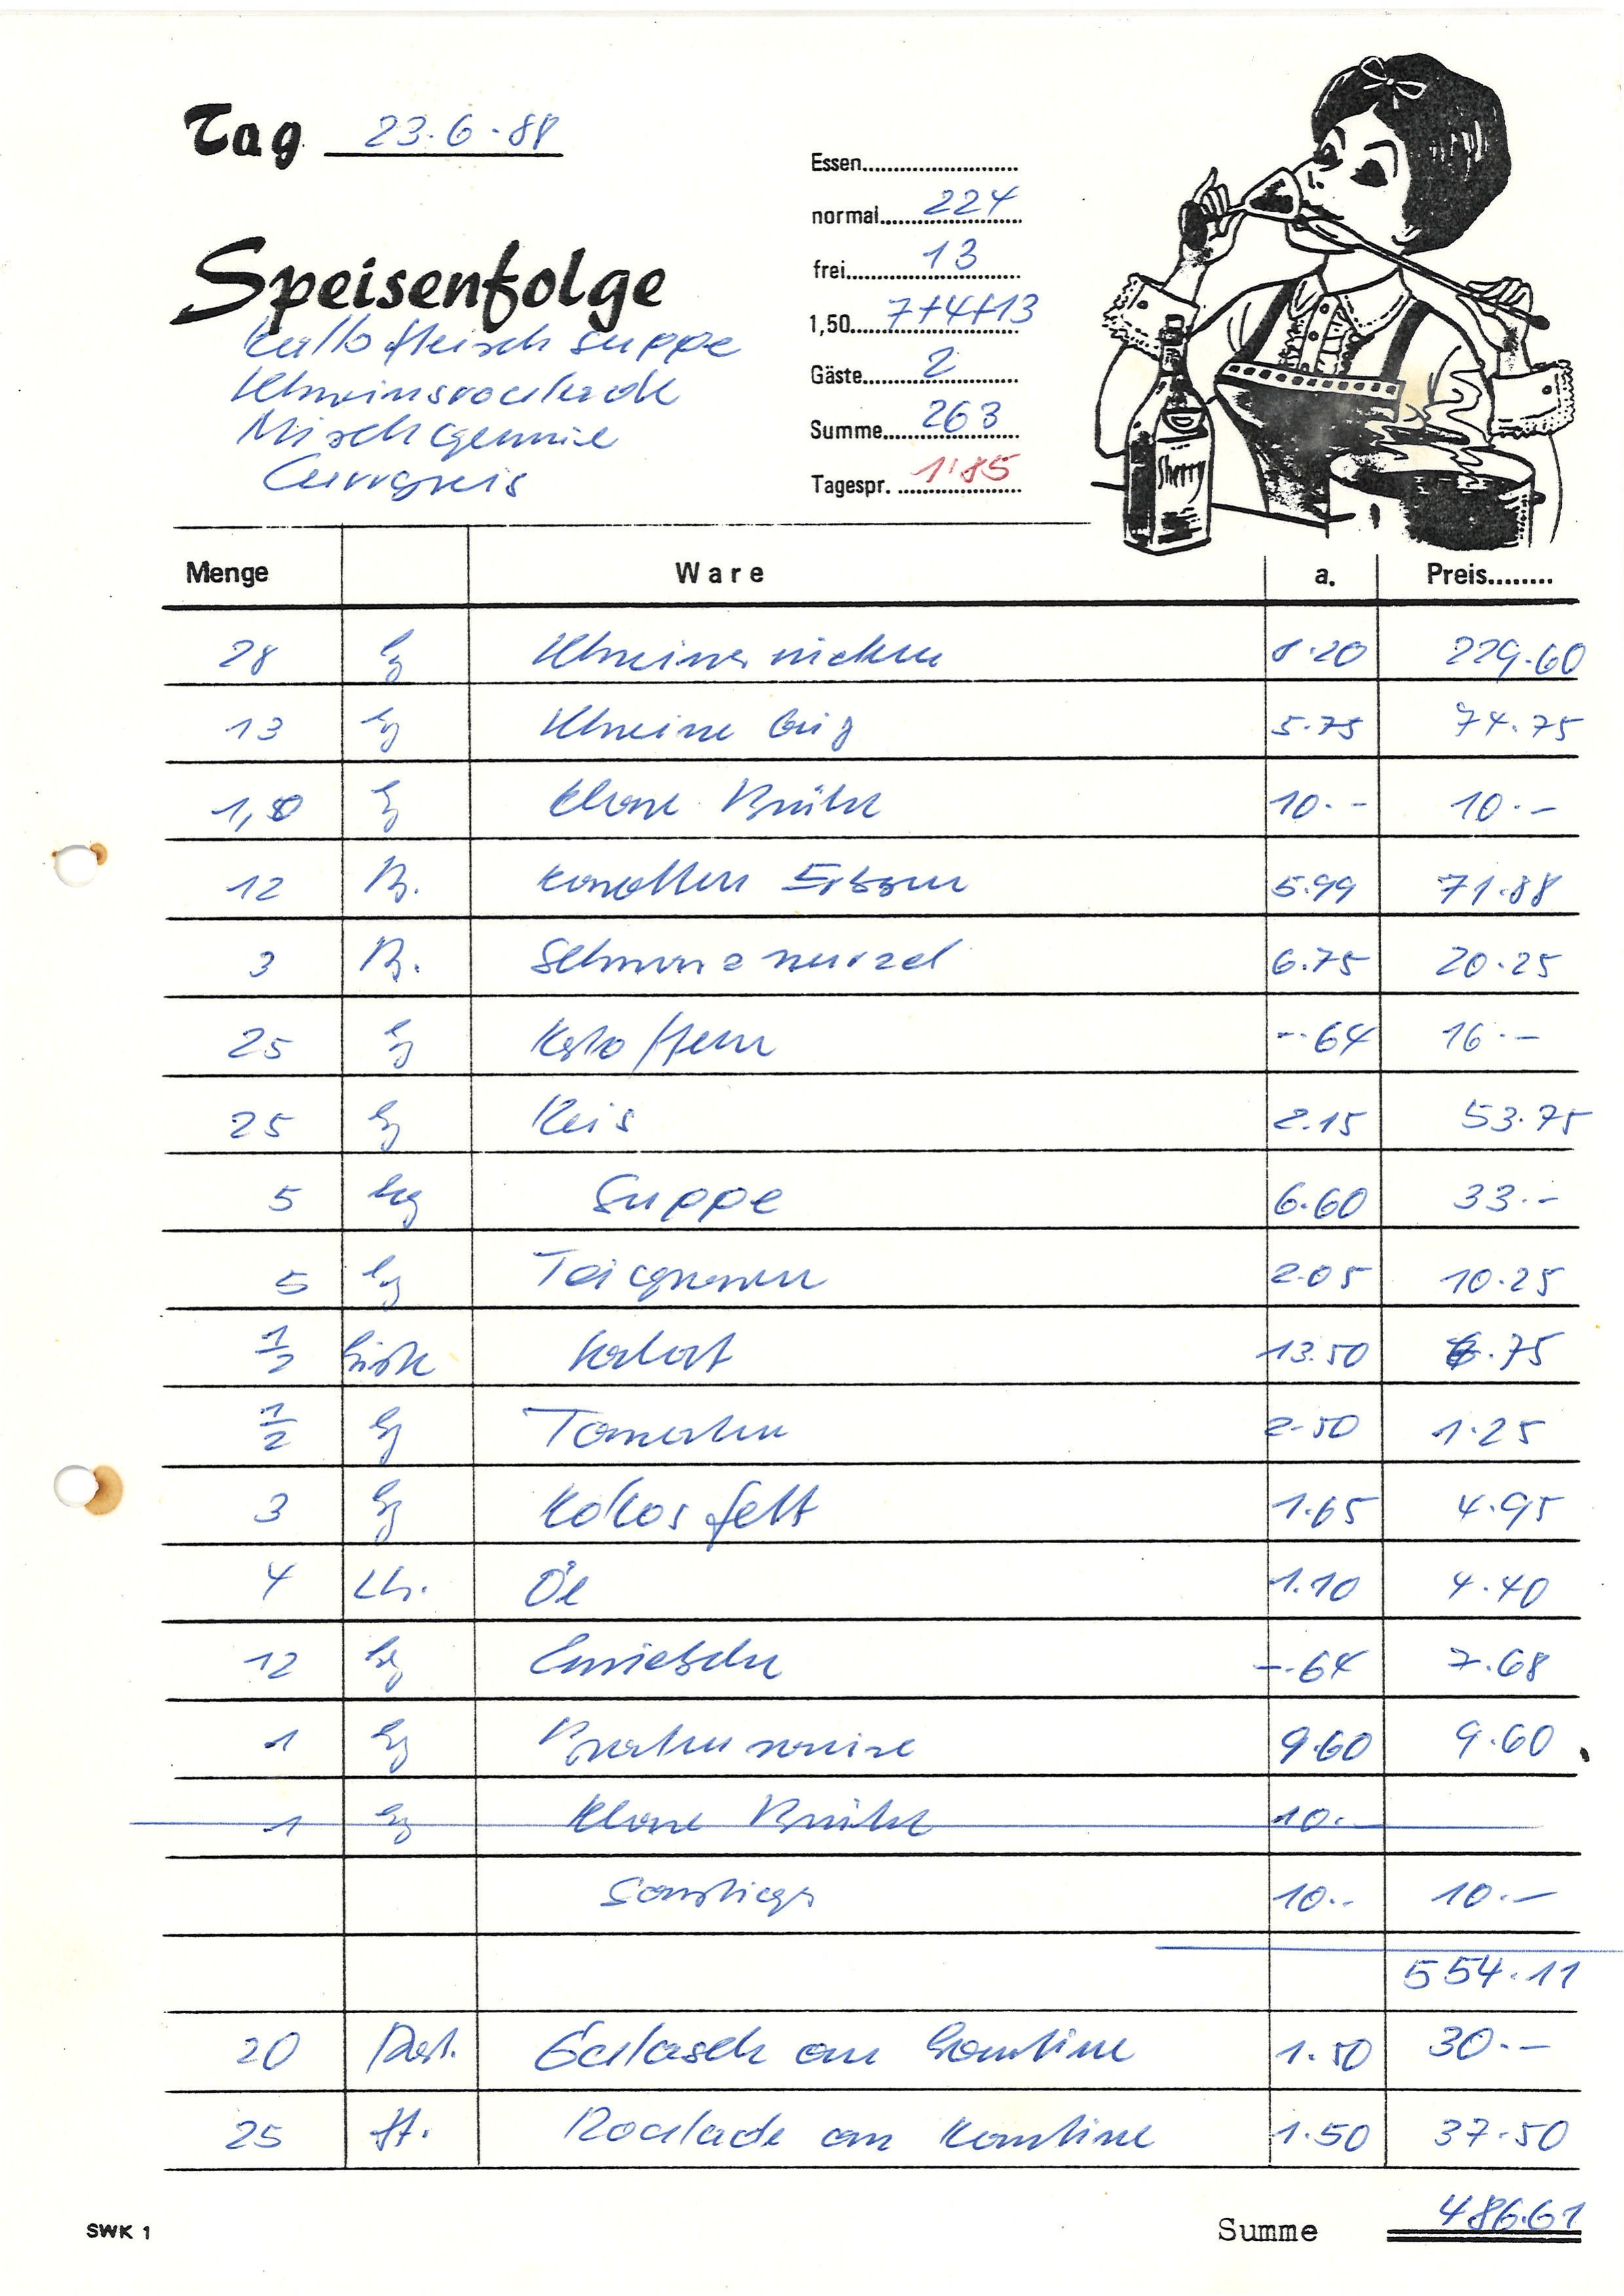 Tag 23.6.88
Essen
normal 224
frei 13
1,50 7+4+13
Gäste 2
Summe 263
Tagespr. 1.85
Speisenfolge
Kalbfleischsuppe
Schweinsroulade
Mischgemüse
Curryreis
Sherry
Menge Ware a. Preis
28 kg Schweinerücken 8.20 229.60
13 kg Schweine 5.75 74.75
1,0 kg Klare Brühe 10.- 10.-
12 B. Karotten Erbsen 5.99 71.88
3 B. Schwarzwurzel 6.75 20.25
25 kg Kartoffeln -.64 16.-
25 kg Reis 2.15 53.75
5 kg Suppe 6.60 33.-
5 kg Teigwaren 2.05 10.25
1/2 Kiste Salat 13.50 6.75
1/2 kg Tomaten 2.50 1.25
3 kg Kokosfett 1.65 4.95
4 Ltr. Öl 1.10 4.40
12 kg Zwiebeln -.64 7.68
1 kg Bratensauce 9.60 9.60
1 kg Klare Brühe 10.-
Sonstiges 10.- 10.-
554.11
20 Port. Gulasch an Kantine 1.50 30.-
25 St. Roulade an Kantine 1.50 37.50
SWK 1 Summe 486.61